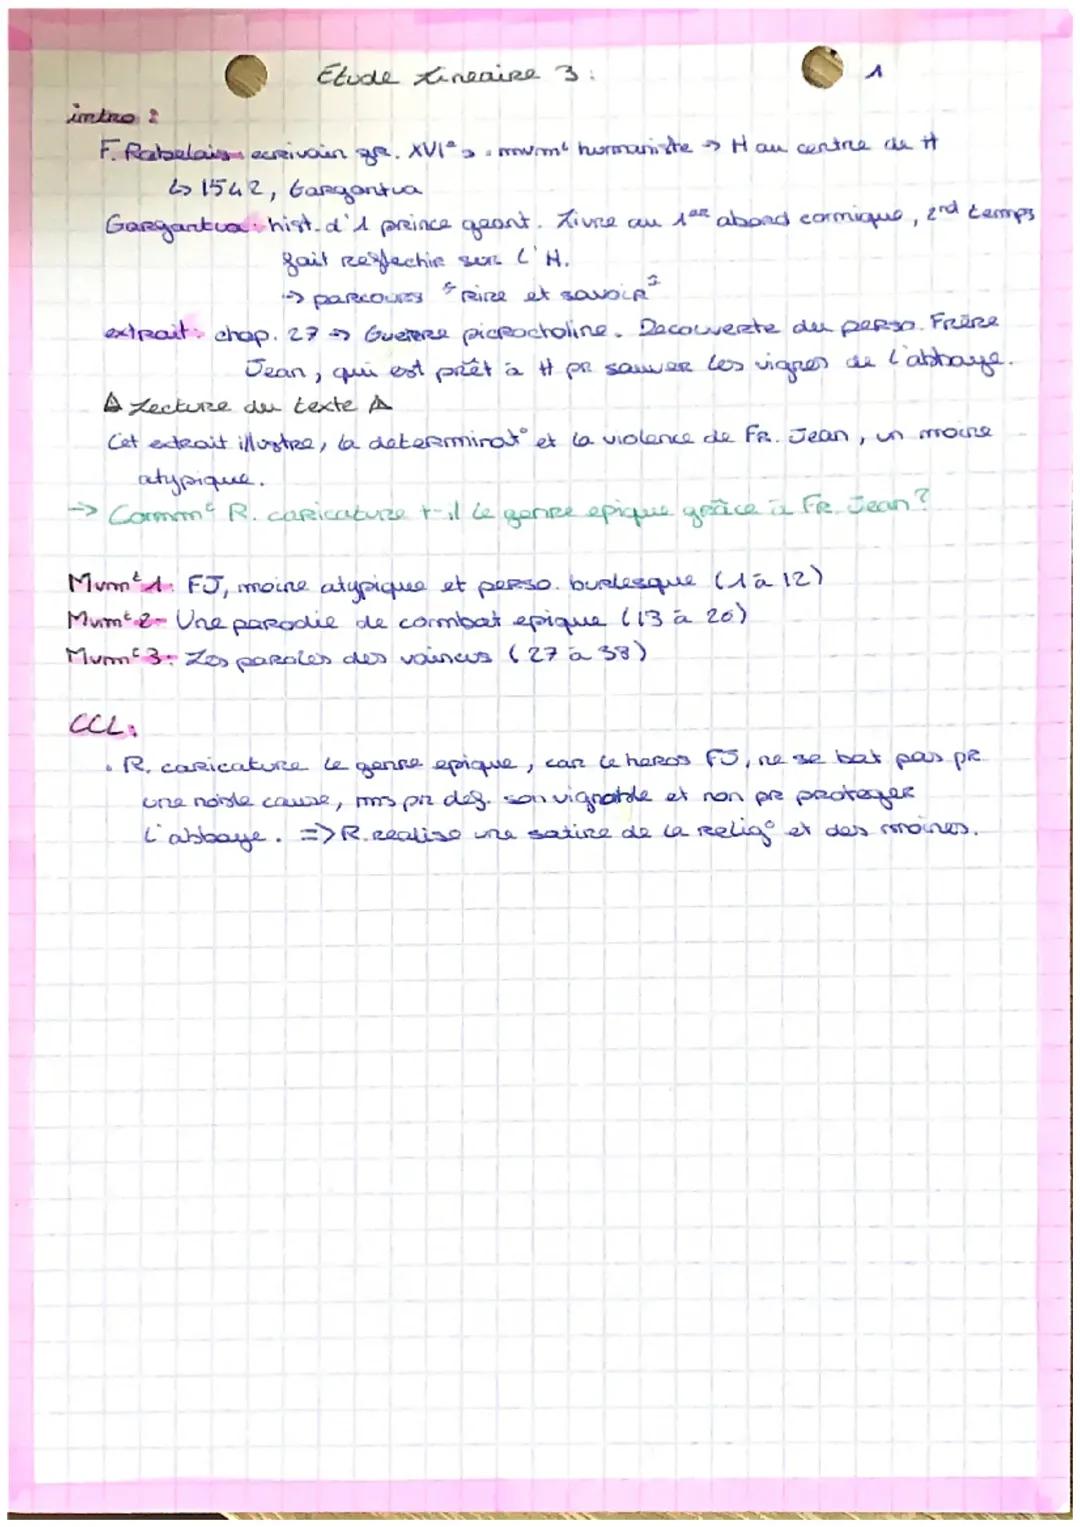 Etude Lineaire 3:
1
intro :
F. Rabelais ecrivain fr. XVIe s. mvmt humaniste → H au centre de tt
↳ 1542, Gargantua
Gargantua: hist. d'1 prince geant. Livre au 1er abord comique, 2nd temps
fait reflechir sur l'H.
→ parcours "rire et savoir"
extrait: chap. 27 → Guerre picrocholine. Decouverte du perso. Frère
Jean, qui est prêt à tt pr sauver les vignes de l'abbaye.
⚠ Lecture du texte ⚠
Cet extrait illustre, la determinat° et la violence de Fr. Jean, un moine
atypique.
→ Commt R. caricature t-il le genre epique grâce à Fr. Jean?
Mvmt 1: FJ, moine atypique et perso. burlesque (1 à 12)
Mvmt 2- Une parodie de combat epique (13 à 26)
Mvmt 3: Les paroles des vaincus (27 à 38)
CCL:
. R. caricature le genre epique, car le heros FJ, ne se bat pas pr
une noble cause, ms pr def. son vignoble et non pr proteger
l'abbaye. => R. realise une satire de la relig° et des moines.